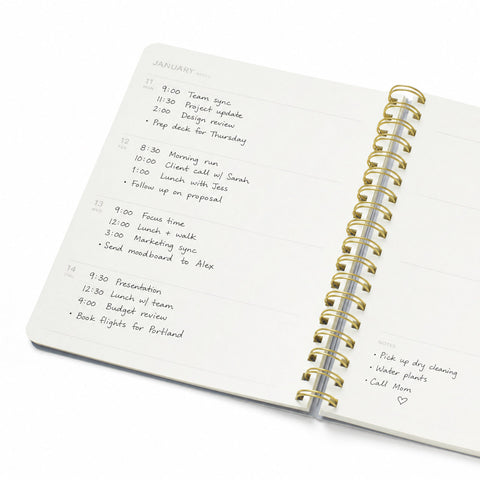 JANUARY
11
9:00 Team sync
11:30 Project update
2:00 Design review
• Prep deck for Thursday
12
8:30 Morning run
10:00 Client call w/ Sarah
1:00 Lunch with Jess
• Follow up on proposal
13
9:00 Focus time
12:00 Lunch + walk
3:00 Marketing sync
• Send moodboard to Alex
14
9:30 Presentation
12:30 Lunch w/ team
4:00 Budget review
• Book flights for Portland
NOTES
• Pick up dry cleaning
• Water plants
• Call Mom
♡